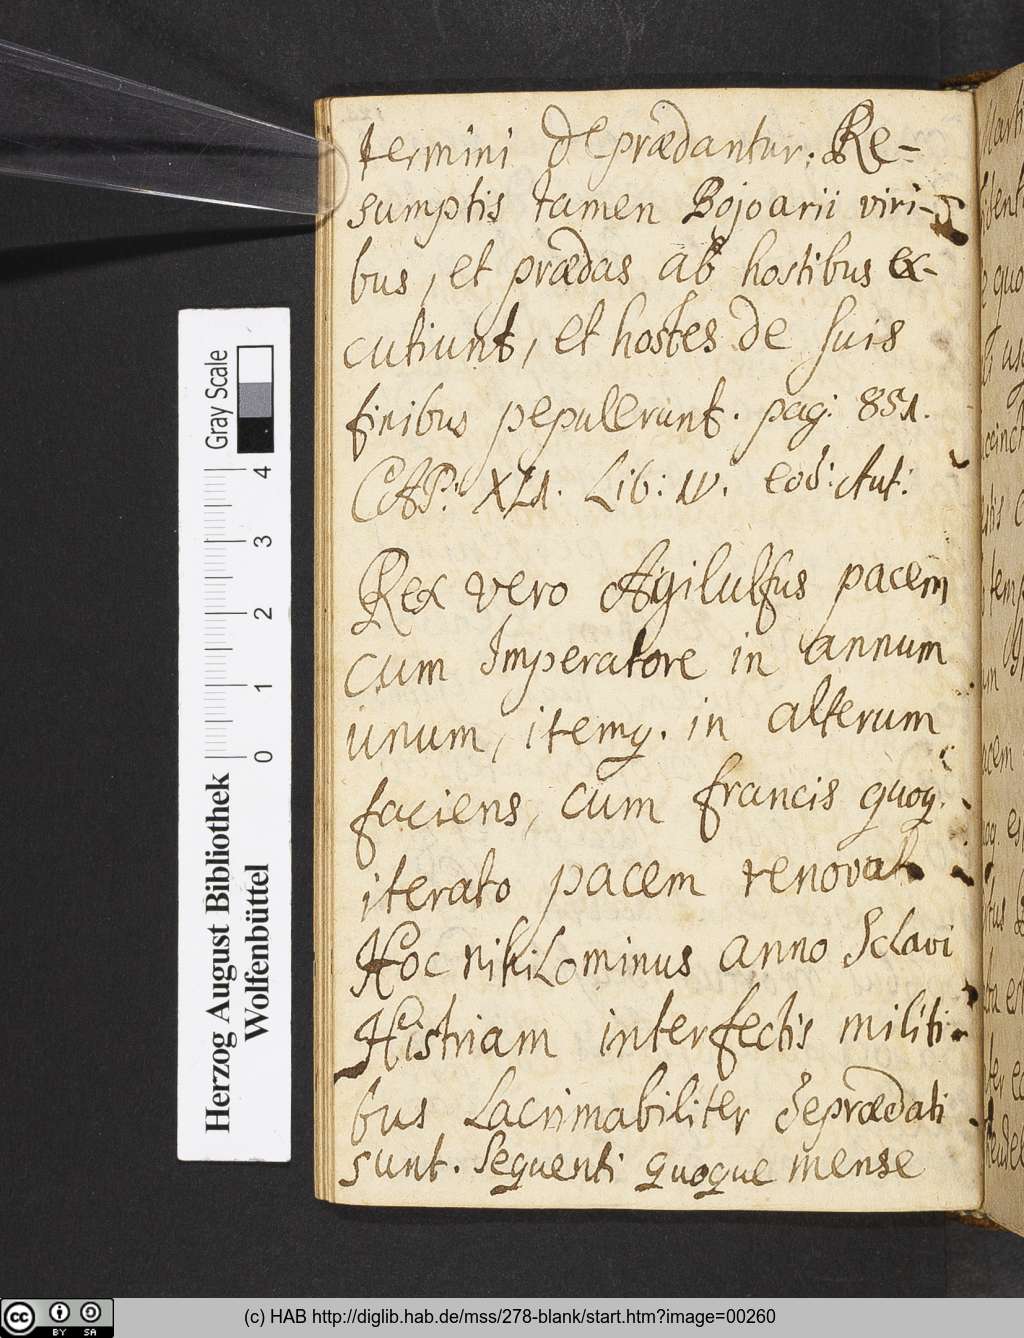 termini deprædantur. Re-
sumptis tamen Bojoarii viri-
bus, et prædas ab hostibus ex-
cutiunt, et hostes de suis
finibus pepulerunt. pag: 851.
CAP: XL1. Lib: IV. eod: Aut:
Rex vero Agilulfus pacem
cum Imperatore in annum
unum, itemq. in alterum
faciens, cum francis quoq.
iterato pacem renovat
Hoc nihilominus anno Sclavi
Histriam interfectis militi-
bus lacrimabiliter deprædati
sunt. Sequenti quoque mense
Herzog August Bibliothek
Wolfenbüttel
0 1 2 3 4
Gray Scale
cc BY SA
(c) HAB http://diglib.hab.de/mss/278-blank/start.htm?image=00260